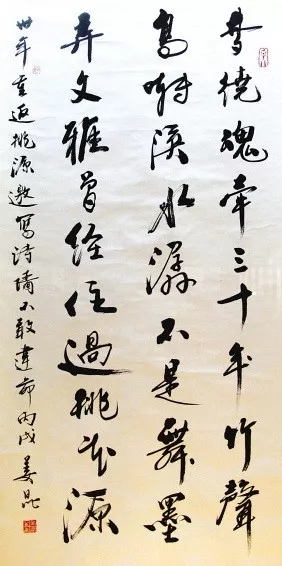 梦绕魂牵三十年竹聲
鸟啭溪水潺不是舞墨
弄文雅曾经住過桃花源
卅年重返桃源邀写诗墙不敢违命丙戌姜昆